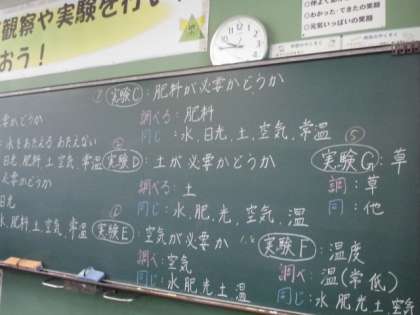 観察や実験を行い
おう！
○わかった・できたの笑顔
○元気いっぱいの笑顔
要かどうか
：水をあたえる あたえない
日光、肥料、土、空気、常温
要かどうか
日光
水、肥料、土、空気、常温
実験C：肥料が必要かどうか
調べる：肥料
同じ：水、日光、土、空気、常温
②
実験D：土が必要かどうか
調べる：土
同じ：水、肥、光、空気、温
実験E：空気が必要か
調べ：空気
同じ：水、肥、光、土、温
⑤
実験G：草
調：草
同：他
実験F：温度
調べ：温(常低)
同じ：水 肥 光 土 空気